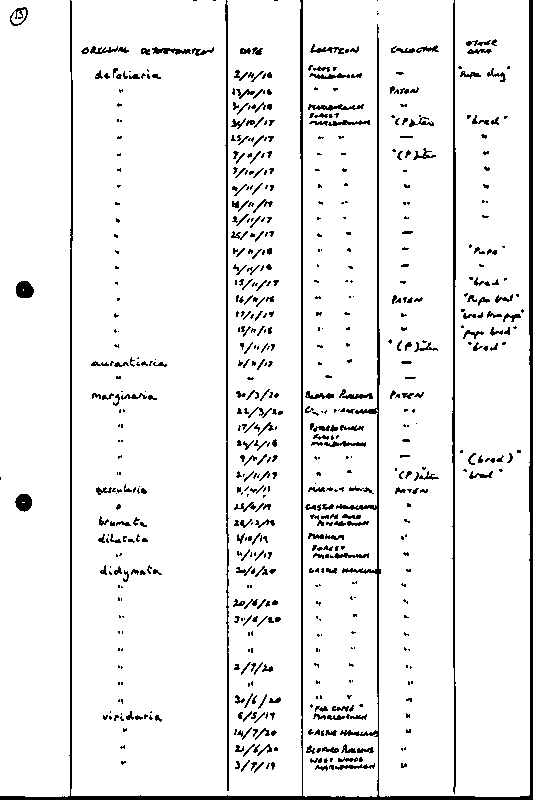 13
ORIGINAL DETERMINATION DATE LOCATION COLLECTOR OTHER DATA
defoliaria 2/11/18 FOREST MARLBOROUGH — "Pupa dug"
" 13/10/18 " " PATEN
" 31/10/18 MARLBOROUGH "
" 30/10/17 FOREST MARLBOROUGH "(P)aten "bred"
" 25/11/17 " " — "
" 7/11/17 " " "(P)aten "
" 7/10/17 " " — "
" 4/11/17 " " — "
" 18/11/17 " " — "
" 2/11/17 " " — "
" 25/11/17 " " —
" 4/11/18 " " — "Pupa"
" 4/11/18 " " — "
" 15/11/17 " " — "bred"
" 16/11/18 " " PATEN "Pupa bred"
" 17/11/17 " " " "bred from pupa"
" 15/11/18 " " " "pupa bred"
" 9/11/17 " " "(P)aten "bred"
aurantiaria 11/11/17 " " —
" — — —
marginaria 30/3/20 BEDFORD PURLIEUS PATEN
" 22/3/20 HANGLANDS "
" 17/4/21 PETERBOROUGH "
" 24/2/18 FOREST MARLBOROUGH —
" 9/11/17 " " — "(bred)"
" 21/11/17 " " "(P)aten "bred"
aescularia MARHOLM WOODS PATEN
" 25/4/19 CASTOR HANGLANDS "
brumata 28/12/19 THORPE ROAD PETERBOROUGH "
dilutata 1/10/19 MARHOLM "
" 11/11/17 FOREST MARLBOROUGH "
didymata 30/6/20 CASTOR HANGLANDS "
" " " " "
" 20/6/20 " " "
" 30/6/20 " " "
" " " " "
" " " " "
" 2/7/20 " " "
" " " " "
" 30/6/20 " " "
viridaria 6/5/19 "FAR COPSE" MARLBOROUGH "
" 14/7/20 CASTOR HANGLANDS "
" 21/6/20 BEDFORD PURLIEUS "
" 3/7/19 WEST WOODS MARLBOROUGH "